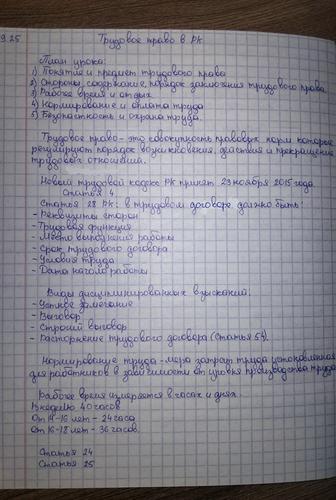 9.25
Трудовое право в РК
План урока:
1) Понятие и предмет трудового права
2) Стороны, содержание, порядок заключения трудового права
3) Рабочее время и отдых
4) Нормирование и оплата труда
5) Безопасность и охрана труда.
Трудовое право - это совокупность правовых норм которые
регулируют порядок возникновения, действия и прекращения
трудовых отношений.
Новый трудовой кодекс РК принят 23 ноября 2015 года
Статья 4
Статья 28 РК: в трудовом договоре должно быть:
- Реквизиты сторон
- Трудовая функция
- Место выполнения работы
- Срок трудового договора
- Условия труда
- Дата начала работы
Виды дисциплинированных взысканий:
- Устное замечание
- Выговор
- Строгий выговор
- Расторжение трудового договора (Статья 54).
Нормирование труда - мера затрат труда установленная
для работников в зависимости от уровня производства труда
Рабочее время измеряется в часах и днях.
В неделю 40 часов
От 14-16 лет - 24 часа
От 16-18 лет - 36 часов.
Статья 24
Статья 25